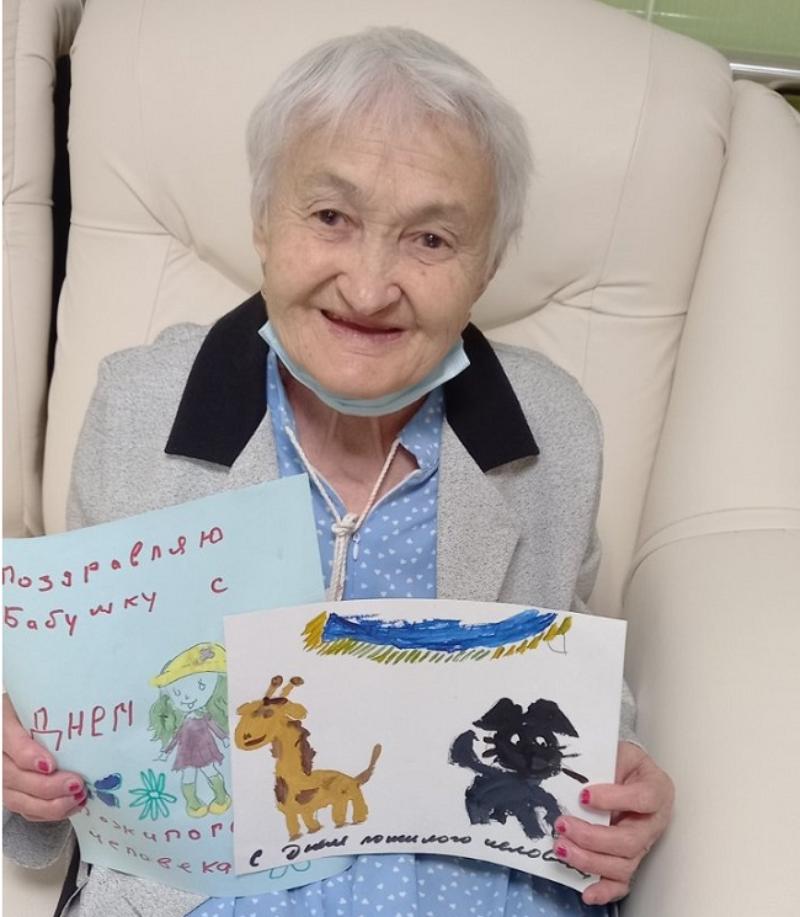 Поздравляю
Бабушку с
Днем
пожилого
человека
с Днем пожилого человека